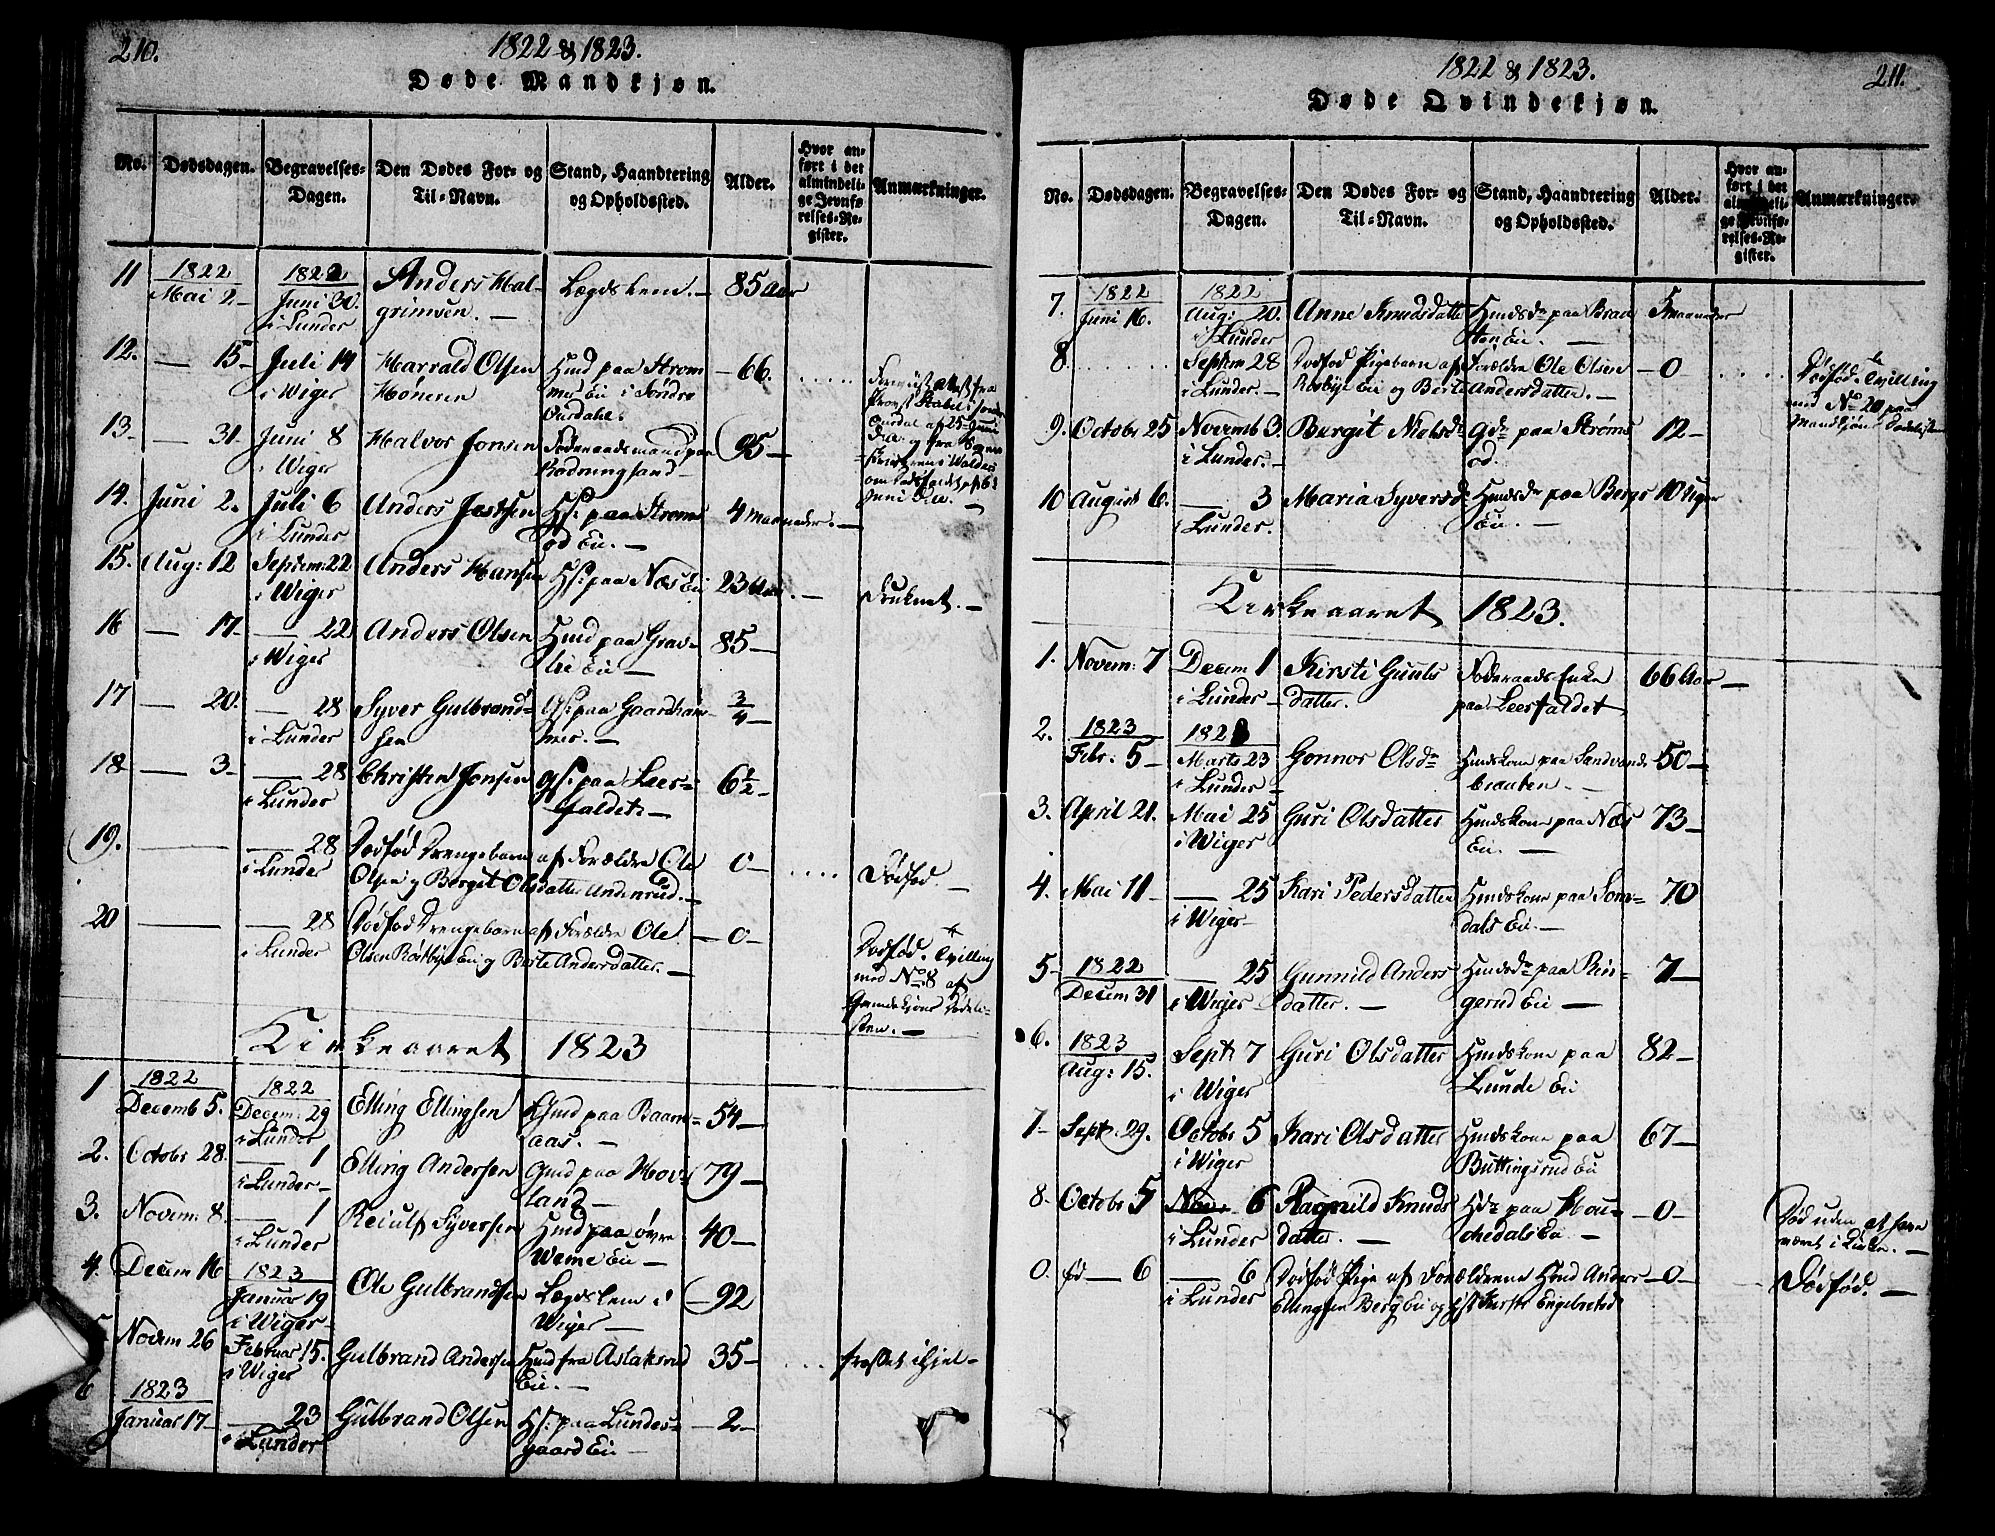 210.
1822 & 1823.
Døde Mandkjøn.
No. Dødsdagen. Begravelses-Dagen. Den Dødes For- og Til-Navn. Stand, Haandtering og Opholdssted. Alder. Hvor anført i det almindelige Jevnførelses-Register. Anmærkninger.
11 1822 Mai 2 1822 Juni 30. i Lunder Anders Halgrimsen. Lægdslem. 85 Aar
12. 15 Juli 14 i Wiger Harrald Olsen Hønenen Hmd paa Strommes Ei i Søndre Ourdahl. 66.
13. 31. Juni 8 i Wiger Halvor Jonsen Foderaadsmand paa 95
14. Juni 2. Juli 6 i Lunder Anders Hs: paa Strømsød Ei. 4 Maaneder.
15. Aug: 12 Septem: 22 i Wiger Anders Hansen Hs: paa Næs Ei 23 Aar. Druknet.
16 17 22 i Wiger Anders Olsen Hmd paa Ei 85
17 20. 28 i Lunder Syver Gulbrandsen Gs: paa Gaardhammer. 3/4
18 3 28 i Lunder Christen Jonsen Gs: paa Leerfaldet. 6 1/2
19. 28 i Lunder Dødfød Drengebarn af Forældre Ole Olsen og Bergit Olsdatter Andersrud. 0 Dødfød.
20 28 i Lunder Dødfød Drengebarn af Forældre Ole Olsen Røsbye Ei og Berte Andersdatter. 0 Dødfød. Tvilling med No. 8 af Qvindekjøns Dødelisten.
Kirkeaaret 1823
1 1822 Decemb 5. 1822 Decem: 29 i Lunder Elling Ellingsen Gmd paa 54
2. Octobr 28. 1 i Lunder Elling Andersen Gmd paa Hovland 79
3. Novem: 8. 1 i Lunder Reiulf Syversen Hmd paa øvre Weme Ei 40
4. Decem 16 1823 Januar 19 i Wiger Ole Gulbrandsen Lægdslem i Wiger 92
5. Novem 26 Februar 15. i Wiger Gulbrand Andersen Hmd fra Aslaksrud Ei. 35 frosset ihjel
6 1823 Januar 17 23 i Lunder Gulbrand Olsen Hs: paa Lundesgaard Ei 2
1822 & 1823.
211.
Døde Qvindekjøn.
No. Dødsdagen. Begravelses-Dagen. Den Dødes For- og Til-Navn. Stand, Haandtering og Opholdssted. Alder. Hvor anført i det almindelige Jevnførelses-Register. Anmærkninger.
7. 1822 Juni 16. 1822 Aug: 20. i Lunder Anne Knudsdatter Hmdsdr paa Ei. 5 Maaneder
8. Septem 28 i Lunder. Dødfød Pigebarn af Forældre Ole Olsen Røsbye Ei og Berte Andersdatter. 0 Dødfød. Tvilling med No 20 paa Mandkjøns Dødelisten
9. Octobr 25 Novemb 3. i Lunder. Bergit Nielsdr Gdr paa Strømsød. 12
10 August 6. 3 i Lunder. Maria Syversdr Hmdsdr paa Bergs Ei. 10 Uger
Kirkeaaret 1823.
1. Novem: 7 Decem 1 i Lunder Kirsti Guulsdatter. Foderaads Enke paa Leerfaldet 66 Aar
2. 1823 Febr. 5 1823 Marts 23 i Lunder Gonnor Olsdr Hmdskone paa Sandvandsbraaten. 50
3. April 21. Mai 25 i Wiger Guri Olsdatter Hmdskone paa Næs Ei. 73
4. Mai 11 25 i Wiger Kari Pedersdatter Hmdskone paa Somdals Ei. 70
5 1822 Decem 31 25 i Wiger Gunnild Andersdatter. Hmdsdr paa Ringerud Ei 7
6. 1823 Aug: 15. Sept: 7 i Wiger Guri Olsdatter Hmdskone paa Lunde Ei 82
7 Sept: 29. Octobr 5 i Wiger Kari Olsdatter Hmdskone paa Buttingsrud Ei 67
8. Octobr 5 Novr 6 i Lunder Ragnild Knudsdatter. Hdr paa 0 Død uden at have været i Kirke.
0. 6 6 i Lunder Dødfød Pige af Forældrene Hmd Anders Ellingsen Berg Ei og Kirsti Engebretsd: 0 Dødfød.